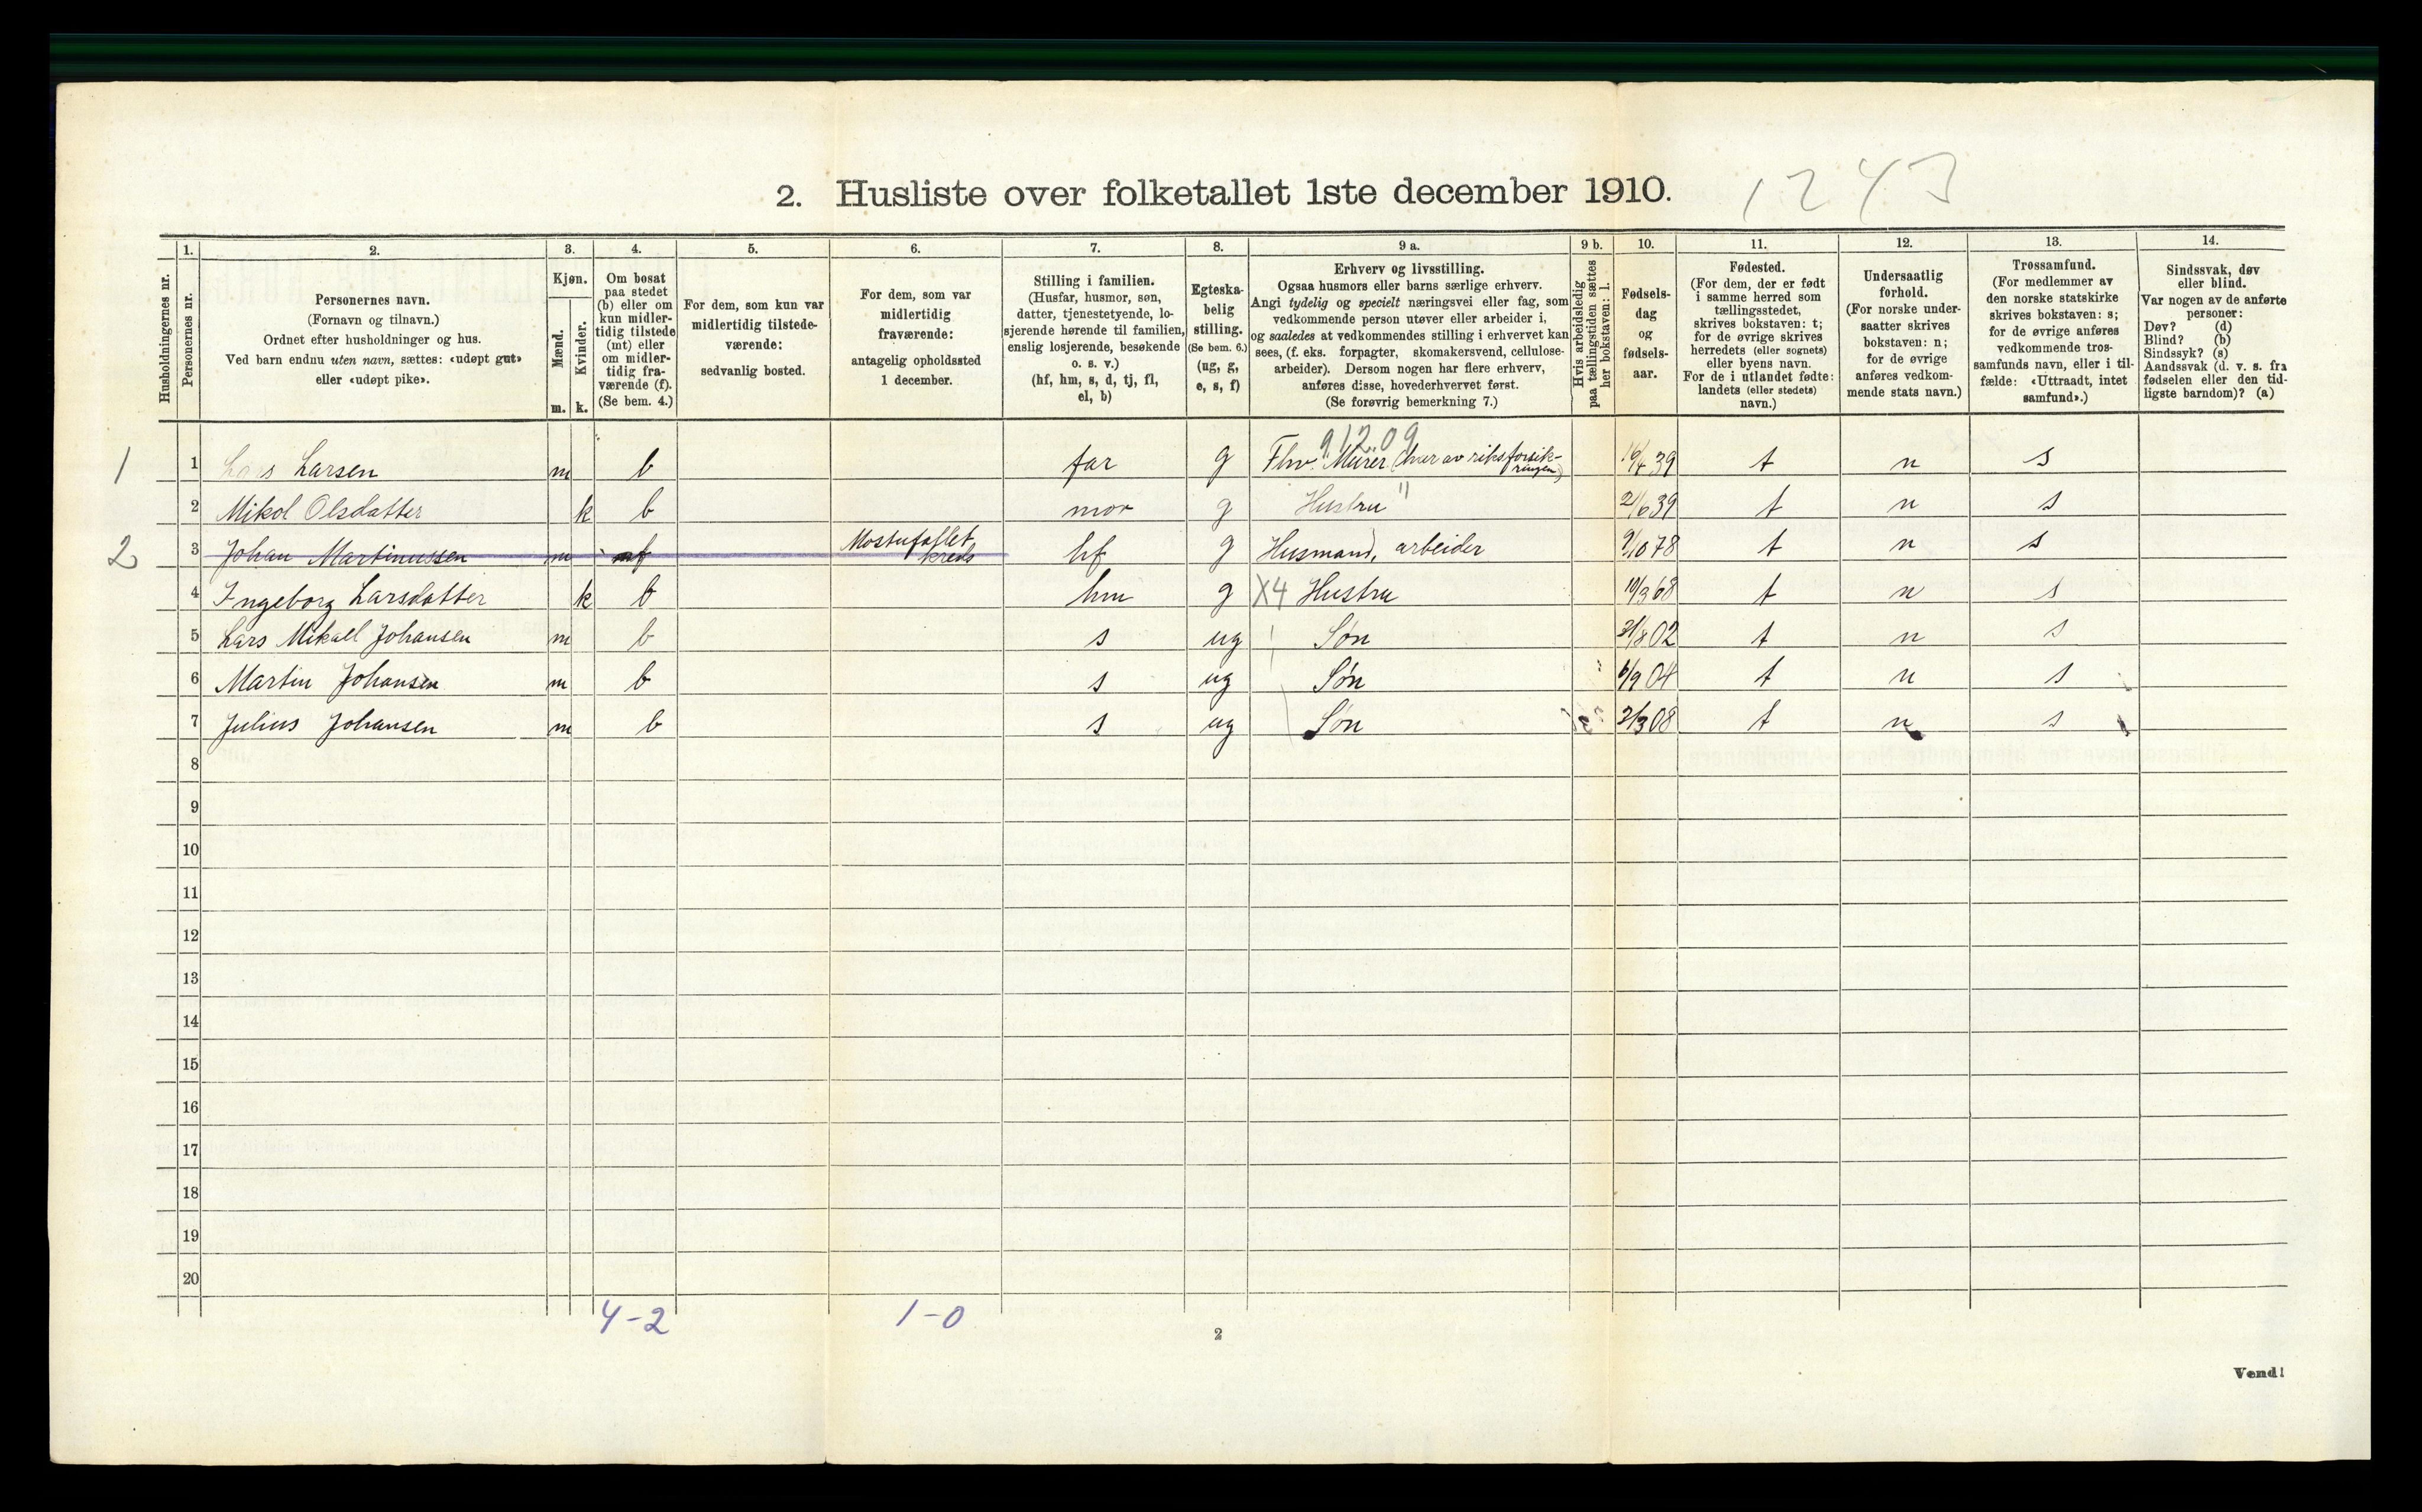 2. Husliste over folketallet 1ste december 1910.
1243
1. 2. 3. 4. 5. 6. 7. 8. 9 a. 9 b. 10. 11. 12. 13. 14.
Husholdningernes nr.
Personernes nr.
Personernes navn.
(Fornavn og tilnavn.)
Ordnet efter husholdninger og hus.
Ved barn endnu uten navn, sættes: «udøpt gut»
eller «udøpt pike».
Kjøn.
Mænd.
Kvinder.
m. k.
Om bosat
paa stedet
(b) eller om
kun midler-
tidig tilstede
(mt) eller
om midler-
tidig fra-
værende (f).
(Se bem. 4.)
For dem, som kun var
midlertidig tilstede-
værende:
sedvanlig bosted.
For dem, som var
midlertidig
fraværende:
antagelig opholdssted
1 december.
Stilling i familien.
(Husfar, husmor, søn,
datter, tjenestetyende, lo-
sjerende hørende til familien,
enslig losjerende, besøkende
o. s. v.)
(hf, hm, s, d, tj, fl,
el, b)
Egteska-
belig
stilling.
(Se bem. 6.)
(ug, g,
e, s, f)
Erhverv og livsstilling.
Ogsaa husmors eller barns særlige erhverv.
Angi tydelig og specielt næringsvei eller fag, som
vedkommende person utøver eller arbeider i,
og saaledes at vedkommendes stilling i erhvervet kan
sees, (f. eks. forpagter, skomakersvend, cellulose-
arbeider). Dersom nogen har flere erhverv,
anføres disse, hovederhvervet først.
(Se forøvrig bemerkning 7.)
Hvis arbeidsledig
paa tællingstiden sættes
her bokstaven: l.
Fødsels-
dag
og
fødsels-
aar.
Fødested.
(For dem, der er født
i samme herred som
tællingsstedet,
skrives bokstaven: t;
for de øvrige skrives
herredets (eller sognets)
eller byens navn.
For de i utlandet fødte:
landets (eller stedets)
navn.)
Undersaatlig
forhold.
(For norske under-
saatter skrives
bokstaven: n;
for de øvrige
anføres vedkom-
mende stats navn.)
Trossamfund.
(For medlemmer av
den norske statskirke
skrives bokstaven: s;
for de øvrige anføres
vedkommende tros-
samfunds navn, eller i til-
fælde: «Uttraadt, intet
samfund».)
Sindssvak, døv
eller blind.
Var nogen av de anførte
personer:
Døv? (d)
Blind? (b)
Sindssyk? (s)
Aandssvak (d. v. s. fra
fødselen eller den tid-
ligste barndom)? (a)
91209
1 1 Lars Larsen m b far g Fhv. Murer (hver av riksforsik-
ringen) 16/4 39 t n s
2 Mikol Olsdatter k b mor g Hustru " 21/6 39 t n s
2 3 Johan Martinussen m f Mostufallet
kreds hf g Husmand, arbeider 9/10 78 t n s
4 Ingeborg Larsdatter k b hm g X4 Hustru 10/3 68 t n s
5 Lars Mikael Johansen m b s ug Søn 31/8 02 t n s
6 Martin Johansen m b s ug Søn 6/9 04 t n s
7 Julius Johansen m b s ug Søn 2/3 08 t n s
8
9
10
11
12
13
14
15
16
17
18
19
20
4-2 1-0
2
Vend!